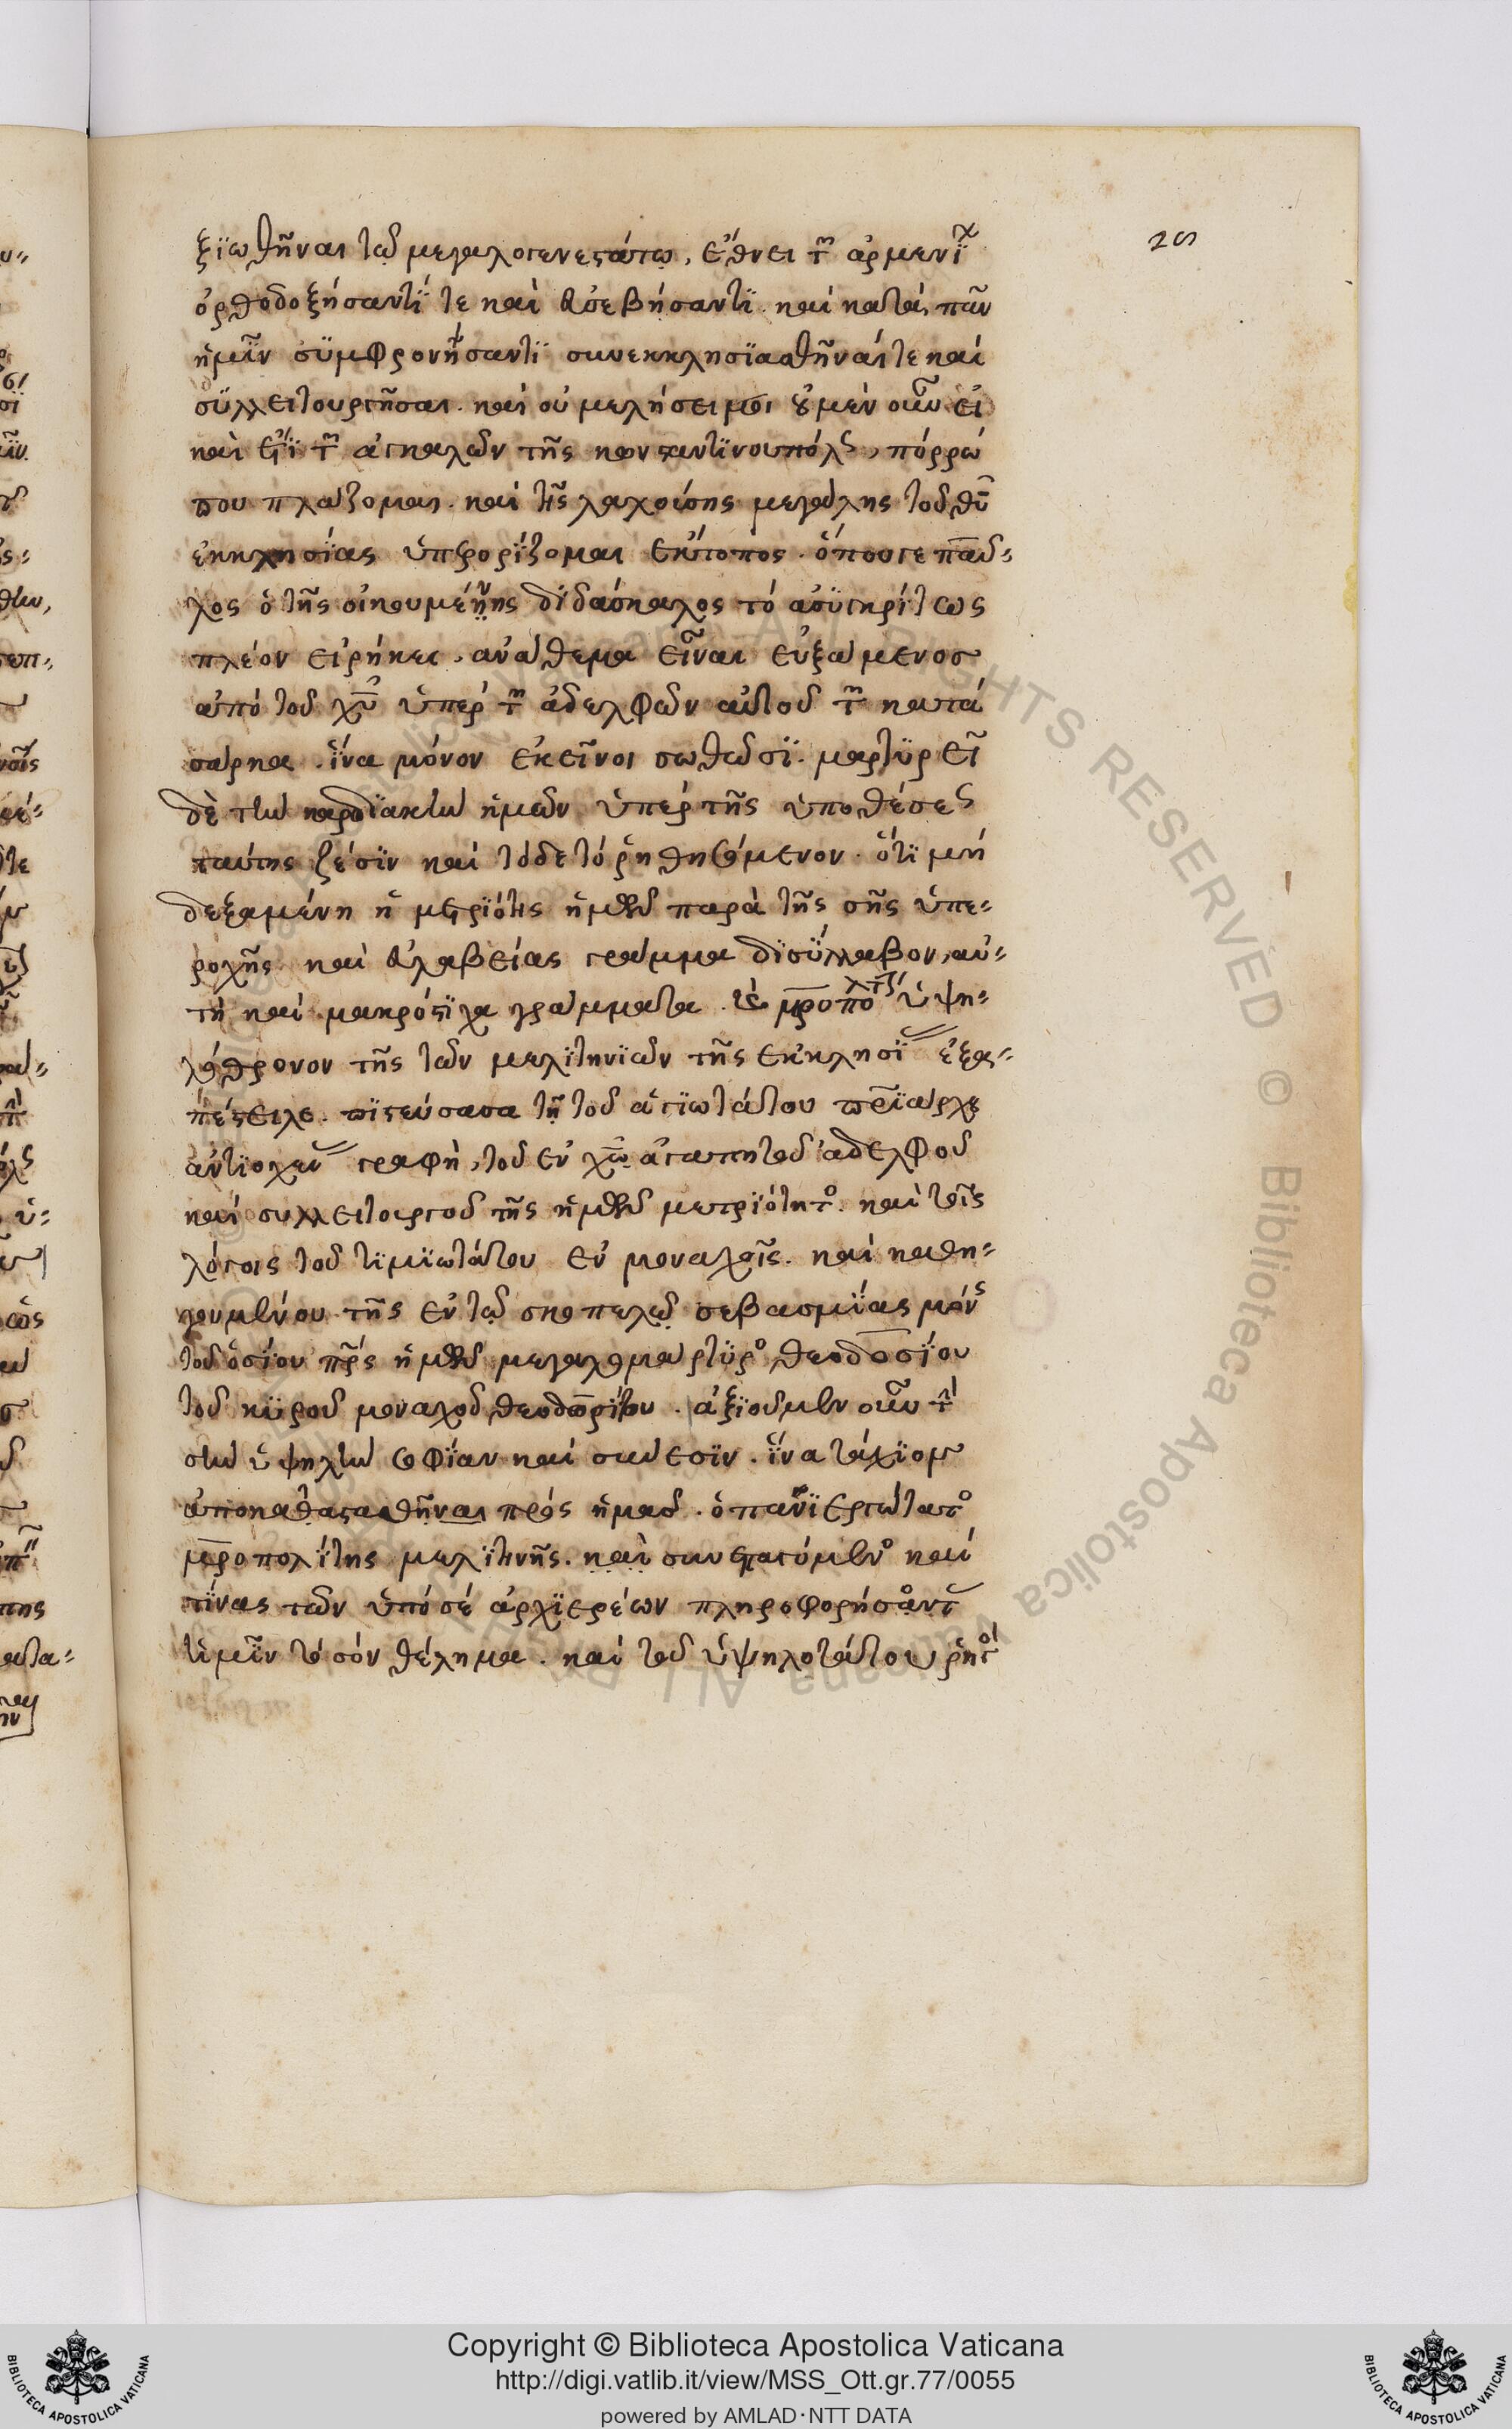 26
ξϊωθῆναι τῶ μεγαλογενεστάτω, ἔθνει τῶν ἀρμενΐ
ὀρθοδοξήσαντΐ τε καὶ εὐσεβήσαντϊ. καὶ κατὰ πᾶν
ἡμῖν σϋμφρονήσαντϊ συνεκκλησϊασθῆναί τε καὶ
σϋλλειτουργῆσαι. καὶ οὐ μελήσει μοι οὐ μὲν οὖν εἰ
καὶ τῶν ἀγκαλῶν τῆς κωνσταντϊνουπόλ, πόρρω
που πλάζομαι. καὶ τῆς λαχούσης μεγάλης τοῦ θῦ
ἐκκλησίας ὑπερορΐζομαι ἔκτοπος. ὅπου γε παῦ-
λος ὁ τῆς οἰκουμένης διδάσκαλος τὸ ἀσϋγκρίτως
πλέον εἰρήκει. ἀνάθεμα εἶναι εὐξάμενος
ἀπὸ τοῦ χῦ ὑπὲρ τῶν ἀδελφῶν αὐτοῦ τῶν κατὰ
σάρκα. ἵνα μόνον ἐκεῖνοι σωθῶσϊ. μαρτϋρεῖ
δὲ τὴν καρδϊακὴν ἡμῶν ὑπὲρ τῆς ὑποθέσε
ταύτης ζέσϊν καὶ τόδε τὸ ῥηθησόμενον. ὅτϊ μὴ
δεξαμένη ἡ μετρϊότης ἡμῶν παρὰ τῆς σῆς ὑπε-
ροχῆς καὶ εὐλαβείας γράμμα δϊσύλλαβον, αὐ-
τὴ καὶ μακρόστϊχα γράμματα. τὸ μροπο ὑψη-
λόθρονον τῆς τῶν μελϊτηνϊῶν τῆς ἐκκλησΐ ἐξα-
πέστειλε. πϊστεύσασα τῆ τοῦ ἁγϊωτάτου πρϊάρχου
ἀντϊοχεί γραφῆ, τοῦ ἐν χῶ ἀγαπητοῦ ἀδελφοῦ
καὶ συλλειτουργοῦ τῆς ἡμῶν μετρϊότητ. καὶ τοῖς
λόγοις τοῦ τϊμϊωτάτου ἐν μοναχοῖς. καὶ καθη-
γουμένου τῆς ἐν τῶ σκοπέλω σεβασμΐας μον
τοῦ ὁσίου πρς ἡμῶν μεγαλομάρτϋρ θεοδοσίου
τοῦ κϋροῦ μοναχοῦ θεοδωρίτου. ἀξϊοῦμεν οὖν τὴν
σὴν ὑψηλὴν σοφΐαν καὶ σύνεσϊν. ἵνα τάχϊον
ἀποκατασταθῆναι πρὸς ἡμᾶς. ὁ πανϊερώτατ
μροπολΐτης μελϊτηνῆς. καὶ συνεπαγόμεν καὶ
τινας τῶν ὑπὸ σὲ ἀρχϊερέων πληροφορήσοντ
ἡμῖν τὸ σὸν θέλημα. καὶ τοῦ ὑψηλοτάτου ῥηγ
Copyright © Biblioteca Apostolica Vaticana
http://digi.vatlib.it/view/MSS_Ott.gr.77/0055
powered by AMLAD·NTT DATA